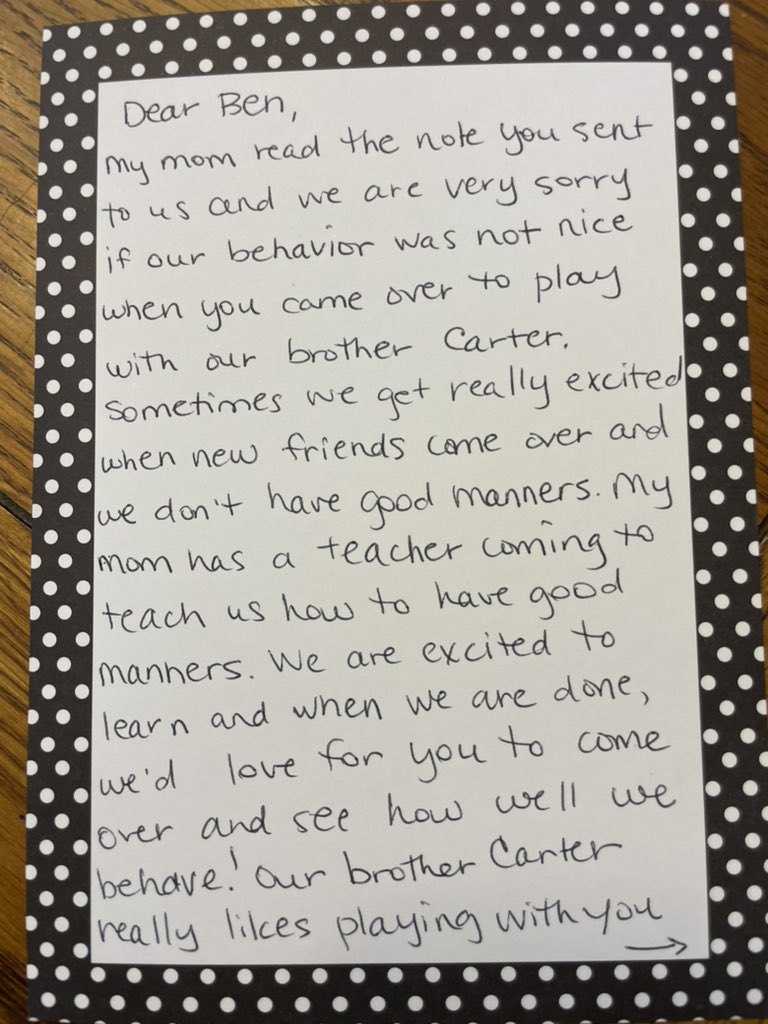 Dear Ben,
My mom read the note you sent
to us and we are very sorry
if our behavior was not nice
when you came over to play
with our brother Carter.
Sometimes we get really excited
when new friends come over and
we don't have good manners. My
mom has a teacher coming to
teach us how to have good
manners. We are excited to
learn and when we are done,
we'd love for you to come
over and see how well we
behave! Our brother Carter
really likes playing with you
→